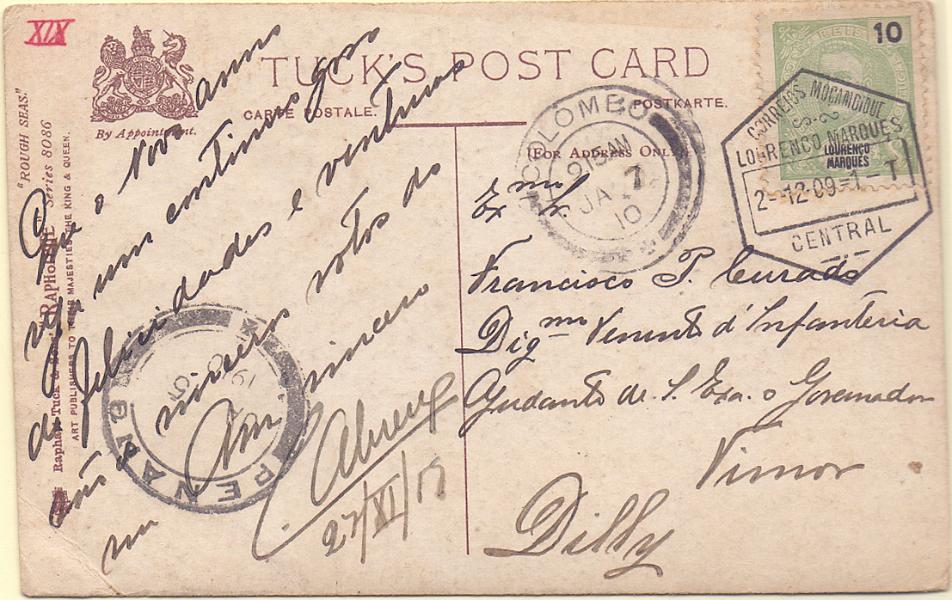 XIX
TUCK'S POST CARD
CARTE POSTALE.
POSTKARTE.
By Appointment.
(FOR ADDRESS ONLY)
"ROUGH SEAS." Series 8086
RAPHOTYPE
Raphael Tuck & Sons'
ART PUBLISHERS TO THEIR MAJESTIES THE KING & QUEEN.
Que o Novo anno
seja um continuo goso
de felicidades e venturas
são sinceros votos do
seu Am. sincero
C. Abreu
27/XI/09
Exmo Sr.
Francisco P. Curado
Digmo Tenente d'Infanteria
Ajudante de S. Exa. o Governador
Timor
Dilly
COLOMBO
JA 7
10
PENANG
10
CORREIOS MOÇAMBIQUE
LOURENÇO MARQUES
LOURENÇO
MARQUES
2-12-09-1-T
CENTRAL